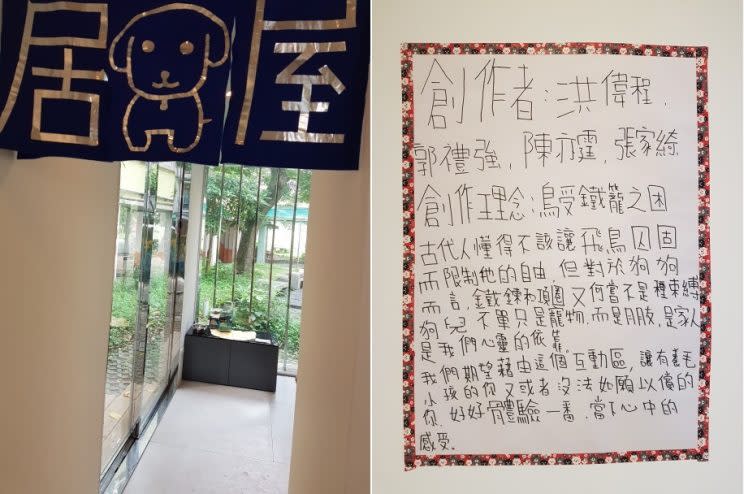 居屋
創作者:洪偉程,
郭禮強,陳亦霆,張家綺
創作理念:鳥受鐵籠之困
古代人懂得不該讓飛鳥囚固
而限制牠的自由,但對於狗狗
而言,鐵鍊和項圈又何當不是種束縛
狗兒不單只是寵物,而是朋友,是家人
是我們心靈的依靠。
我們期望藉由這個互動區,讓有養毛
小孩的你又或者沒法如願以償的
你,好好體驗一番,當下心中的
感受。